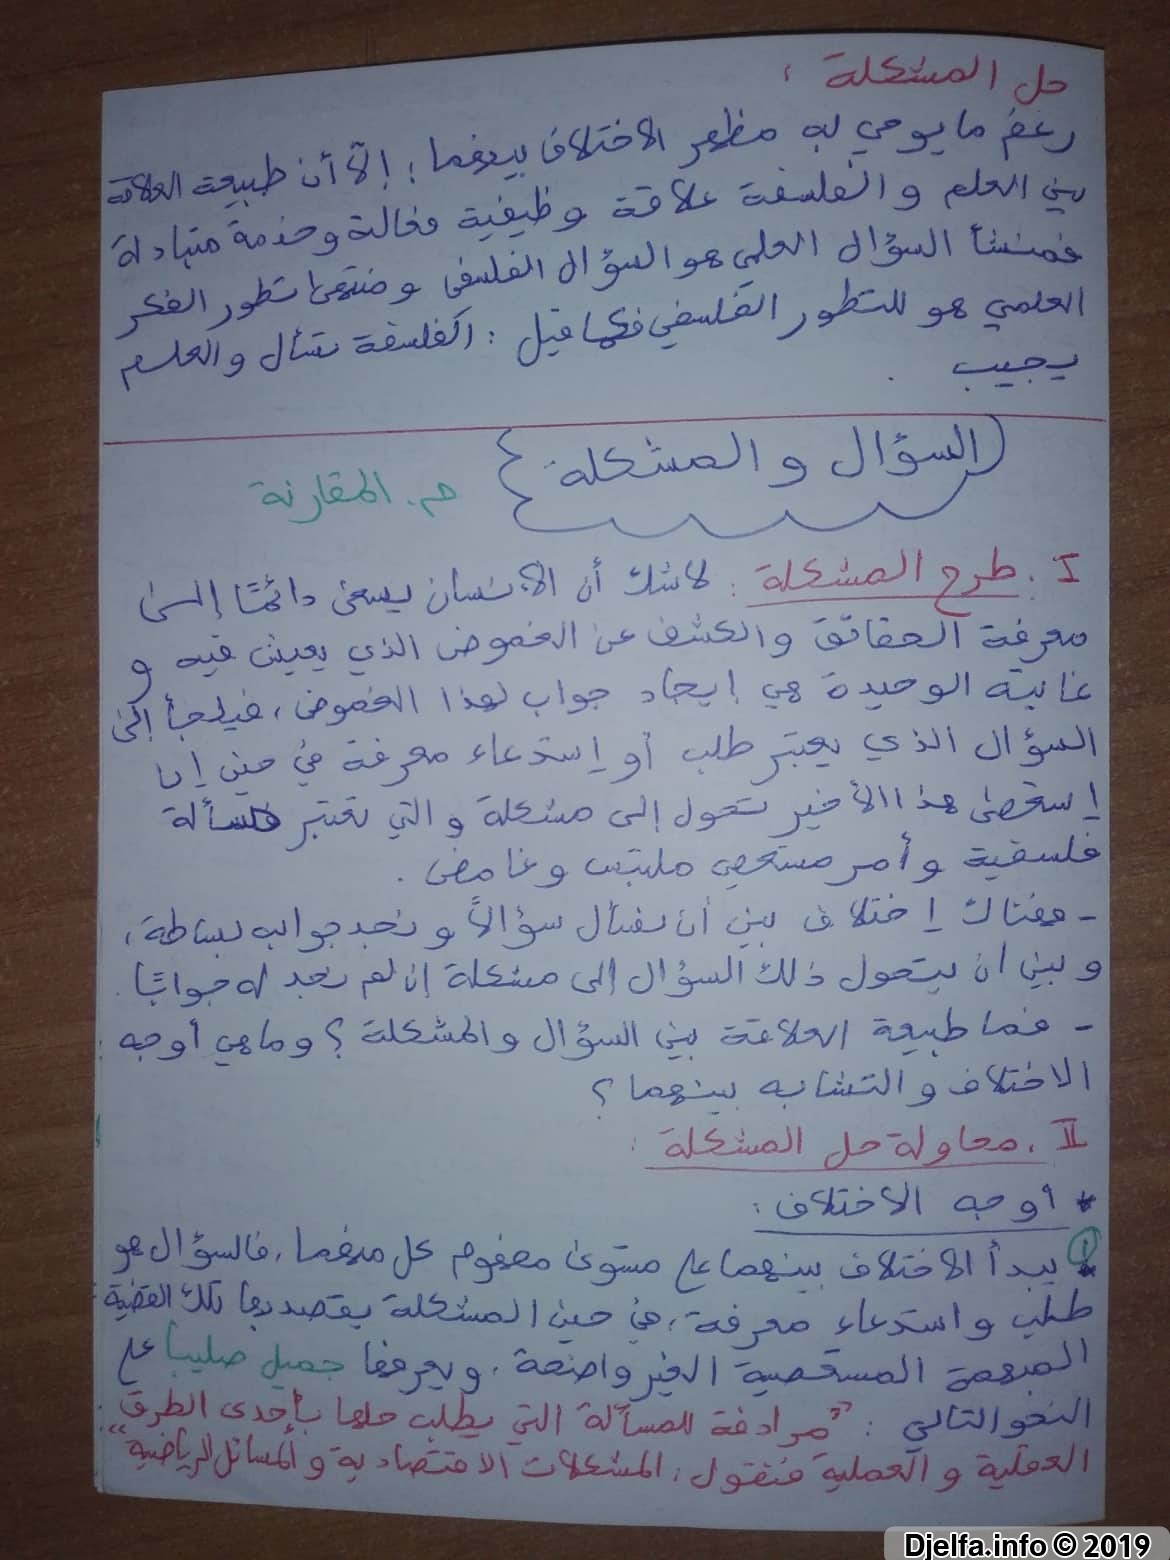 حل المشكلة :
رغم ما يوحي به مظهر الاختلاف بينهما ؛ إلّا أن طبيعة العلاقة
بين العلم و الفلسفة علاقة وظيفية فعالة و خدمة متبادلة
فمنشأ السؤال العلمي هو السؤال الفلسفي و منتهى تطور الفكر
العلمي هو للتطور الفلسفي فكما قيل : الفلسفة تسأل و العلم
يجيب .
السؤال و المشكلة
م. المقارنة
I . طرح المشكلة : لاشك أن الانسان يسعى دائمًا إلى
معرفة الحقائق والكشف عن الغموض الذي يعيش فيه و
غايته الوحيدة هي إيجاد جواب لهذا الغموض ، فيلجأ إلى
السؤال الذي يعتبر طلب أو إستدعاء معرفة في حين إن
إستعصى هذا الأخير تحول إلى مشكلة و التي تعتبر مسألة
فلسفية و أمر مستعصي ملتبس و غامض .
- فهناك إختلاف بين أن نسأل سؤالاً و نجد جوابه ببساطة ،
و بين ان يتحول ذلك السؤال إلى مشكلة إن لم نجد له جوابًا .
- فما طبيعة العلاقة بين السؤال و المشكلة ؟ و ما هي أوجه
الاختلاف و التشابه بينهما ؟
II . محاولة حل المشكلة :
* أوجه الاختلاف :
1 يبدأ الاختلاف بينهما على مستوى مفهوم كل منهما ، فالسؤال هو
طلب و استدعاء معرفة ، في حين المشكلة يقصد بها تلك القضية
المبهمة المستعصية الغير واضحة ، ويعرفها جميل صليبا على
النحو التالي : "مرادفة للمسألة التي يطلب حلها بإحدى الطرق
العقلية و العملية فنقول ، المشكلات الاقتصادية و المسائل الرياضية"
Djelfa.info © 2019